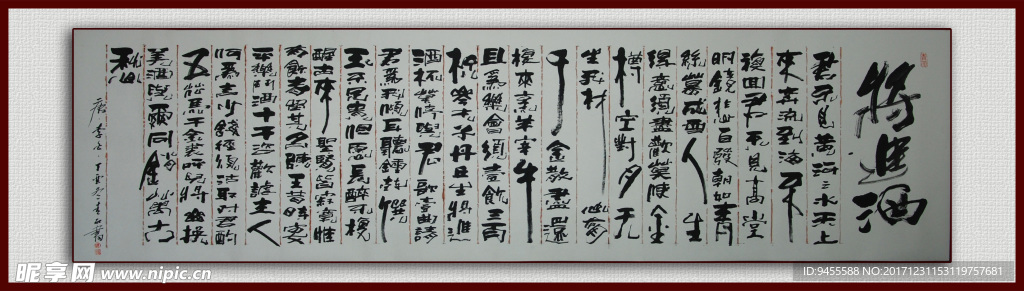 將進酒
君不見黄河之水天上
來奔流到海不
復回君不見高堂
明鏡悲白髮朝如青
絲暮成雪人生
得意須盡歡莫使金
樽空對月天
生我材必有用
千金散盡還
復來烹羊宰牛
且爲樂會須壹飲三百
杯岑夫子丹丘生將進
酒杯莫停與君歌壹曲請
君爲我傾耳聽鐘鼓饌
玉不足貴但願長醉不復
醒古來聖賢皆寂寞惟
有飲者留其名陳王昔時宴
平樂斗酒十千恣歡謔主人
何爲言少錢徑須沽取對君酌
五花馬千金裘呼兒將出換
美酒與爾同銷萬古
愁
唐李白丁酉冬書
昵享网 www.nipic.cn
ID:9455588 NO:20171231153119757681